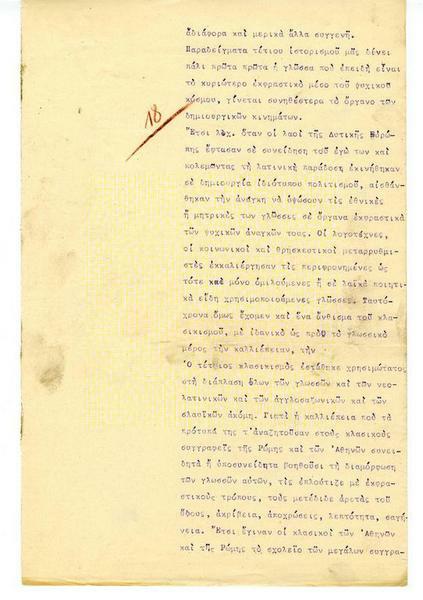 ἀδιάφορα καὶ μερικὰ ἄλλα συγγενῆ.
Παραδείγματα τέτιου ἱστορισμοῦ μᾶς δίνει
πάλι πρῶτα πρῶτα ἡ γλῶσσα ποὺ ἐπειδὴ εἶναι
τὸ κυριώτερο ἐκφραστικὸ μέσο τοῦ ψυχικοῦ
κόσμου, γίνεται συνηθέστερα τὸ ὄργανο τῶν
δημιουργικῶν κινημάτων.
18
Ἔτσι λ.χ. ὅταν οἱ λαοὶ τῆς Δυτικῆς Εὐρώ-
πης ἔφτασαν σὲ συνείδηση τοῦ ἐγώ των καὶ
πολεμώντας τὴ λατινικὴ παράδοση ἐκινήθηκαν
σὲ δημιουργία ἰδιότυπου πολιτισμοῦ, αἰσθάν-
θηκαν τὴν ἀνάγκη νὰ ὑψώσουν τὶς ἐθνικὲς
ἢ μητρικές των γλῶσσες σὲ ὄργανα ἐκφραστικὰ
τῶν ψυχικῶν ἀναγκῶν τους. Οἱ λογοτέχνες,
οἱ κοινωνικοὶ καὶ θρησκευτικοὶ μεταρρυθμι-
στὲς ἐκκαλιέργησαν τὶς περιφρονημένες ὡς
τότε καὶ μόνο ὁμιλούμενες ἢ σὲ λαϊκὰ ποιητι-
κὰ εἴδη χρησιμοποιούμενες γλῶσσες. Ταυτό-
χρονα ὅμως ἔχομεν καὶ ἕνα ἄνθισμα τοῦ κλα-
σικισμοῦ, μὲ ἰδανικὸ ὡς πρὸς τὸ γλωσσικὸ
μέρος τὴν καλλιέπειαν, τὴν
Ὁ τέτοιος κλασικισμὸς ἐστάθηκε χρησιμώτατος
στὴ διάπλαση ὅλων τῶν γλωσσῶν καὶ τῶν νεο-
λατινικῶν καὶ τῶν ἀγγλοσαξωνικῶν καὶ τῶν
σλαυϊκῶν ἀκόμη. Γιατὶ ἡ καλλιέπεια ποὺ τὰ
πρότυπά της τ'ἀναζητοῦσαν στοὺς κλασικοὺς
συγγραφεῖς τῆς Ρώμης καὶ τῶν Ἀθηνῶν συνει-
δητὰ ἢ ὑποσυνείδητα βοηθοῦσι τὴ διαμόρφωση
τῶν γλωσσῶν αὐτῶν, τὶς ἐπλούτιζε μὲ ἐκφρα-
στικοὺς τρόπους, τοὺς μετέδιδε ἀρετὰς τοῦ
ὕφους, ἀκρίβεια, ἀποχρώσεις, λεπτότητα, σαφή-
νεια. Ἔτσι ἔγιναν οἱ κλασικοὶ τῶν Ἀθηνῶν
καὶ τῆς Ρώμης τὸ σχολεῖο τῶν μεγάλων συγγρα-